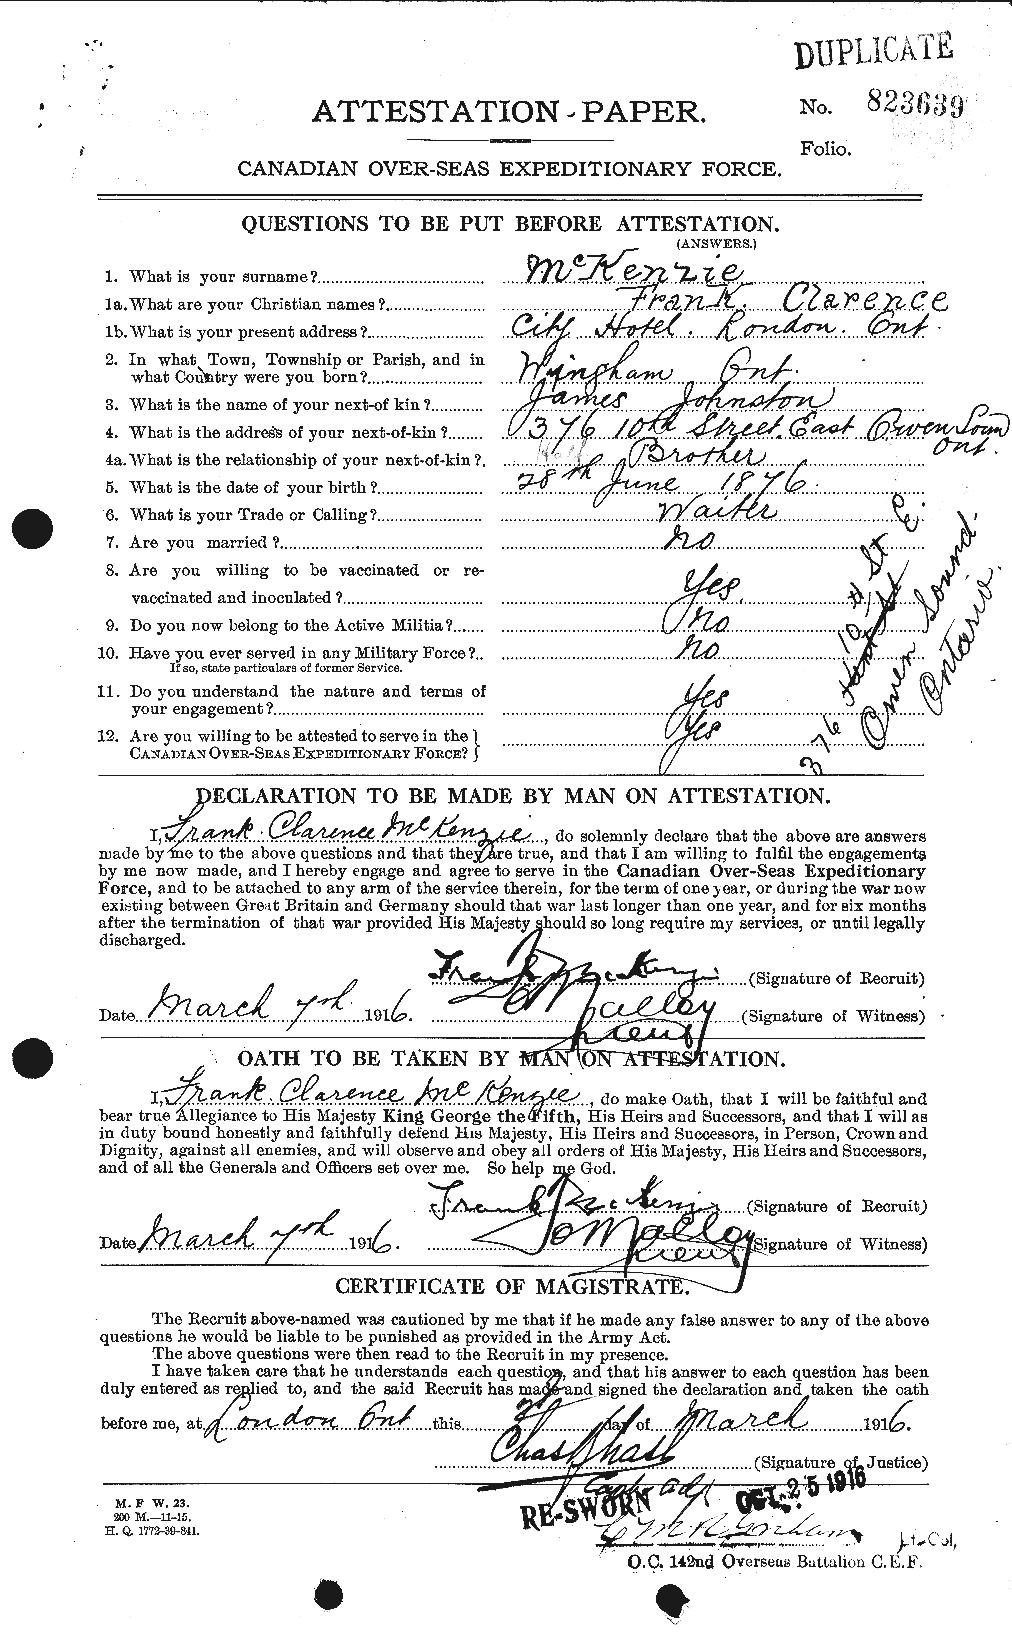 DUPLICATE
ATTESTATION PAPER.
No. 823639
Folio.
CANADIAN OVER-SEAS EXPEDITIONARY FORCE.
QUESTIONS TO BE PUT BEFORE ATTESTATION.
(ANSWERS.)
1. What is your surname? McKenzie
1a. What are your Christian names? Frank. Clarence
1b. What is your present address? City Hotel. London. Ont.
2. In what Town, Township or Parish, and in
what Country were you born? Wingham Ont.
3. What is the name of your next-of kin? James Johnston
4. What is the address of your next-of-kin? 376 10th Street. East Owen Soun
Ont.
4a. What is the relationship of your next-of-kin? Half Brother
5. What is the date of your birth? 28th June 1876.
6. What is your Trade or Calling? Waiter
7. Are you married? no
8. Are you willing to be vaccinated or re-
vaccinated and inoculated? Yes.
9. Do you now belong to the Active Militia? no
10. Have you ever served in any Military Force? no
If so, state particulars of former Service.
11. Do you understand the nature and terms of
your engagement? Yes
12. Are you willing to be attested to serve in the
CANADIAN OVER-SEAS EXPEDITIONARY FORCE? Yes
376 10th St E.
Owen Sound.
Ontario.
DECLARATION TO BE MADE BY MAN ON ATTESTATION.
I, Frank Clarence McKenzie, do solemnly declare that the above are answers
made by me to the above questions and that they are true, and that I am willing to fulfil the engagements
by me now made, and I hereby engage and agree to serve in the Canadian Over-Seas Expeditionary
Force, and to be attached to any arm of the service therein, for the term of one year, or during the war now
existing between Great Britain and Germany should that war last longer than one year, and for six months
after the termination of that war provided His Majesty should so long require my services, or until legally
discharged.
Frank McKenzie (Signature of Recruit)
Date March 7th 1916. Malley Lieut (Signature of Witness)
OATH TO BE TAKEN BY MAN ON ATTESTATION.
I, Frank Clarence McKenzie, do make Oath, that I will be faithful and
bear true Allegiance to His Majesty King George the Fifth, His Heirs and Successors, and that I will as
in duty bound honestly and faithfully defend His Majesty, His Heirs and Successors, in Person, Crown and
Dignity, against all enemies, and will observe and obey all orders of His Majesty, His Heirs and Successors,
and of all the Generals and Officers set over me. So help me God.
Frank McKenzie (Signature of Recruit)
Date March 7th 1916. Malley Lieut (Signature of Witness)
CERTIFICATE OF MAGISTRATE.
The Recruit above-named was cautioned by me that if he made any false answer to any of the above
questions he would be liable to be punished as provided in the Army Act.
The above questions were then read to the Recruit in my presence.
I have taken care that he understands each question, and that his answer to each question has been
duly entered as replied to, and the said Recruit has made and signed the declaration and taken the oath
before me, at London Ont this day of March 1916.
Chas (Signature of Justice)
RE-SWORN OCT 25 1916
Lt-Col,
O.C. 142nd Overseas Battalion C.E.F.
M. F W. 23.
200 M.—11-15.
H. Q. 1772-39-841.